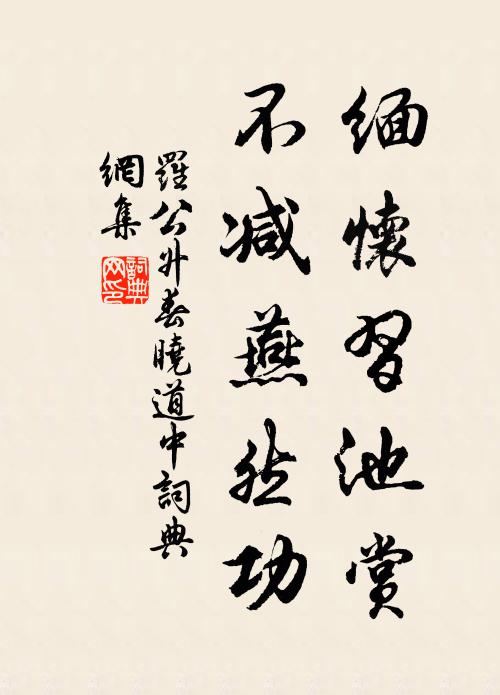 緬懷習池賞
不减燕然功
羅公升春曉道中詞典
網集
詞典
網印